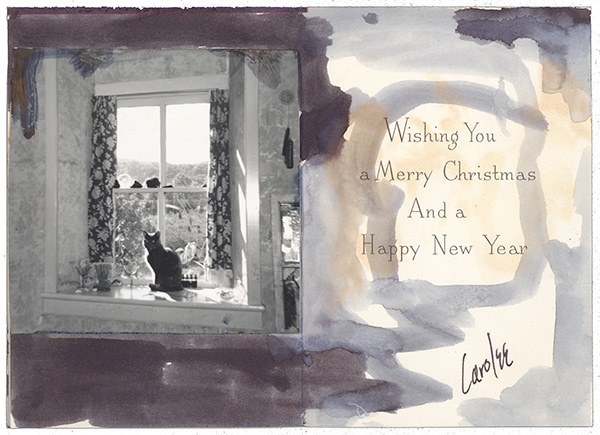 Wishing You
a Merry Christmas
And a
Happy New Year
Carolee